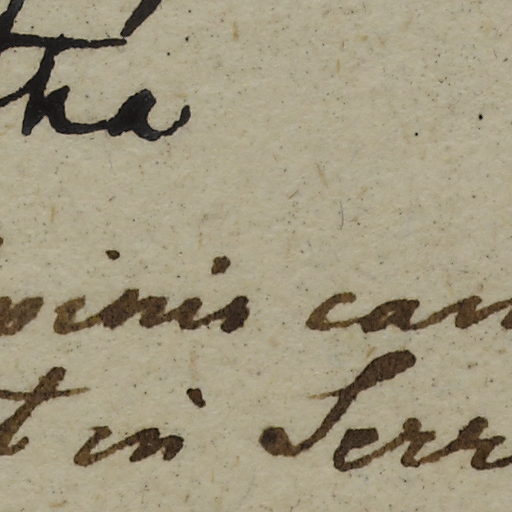 tha
vinis can
t in Serr